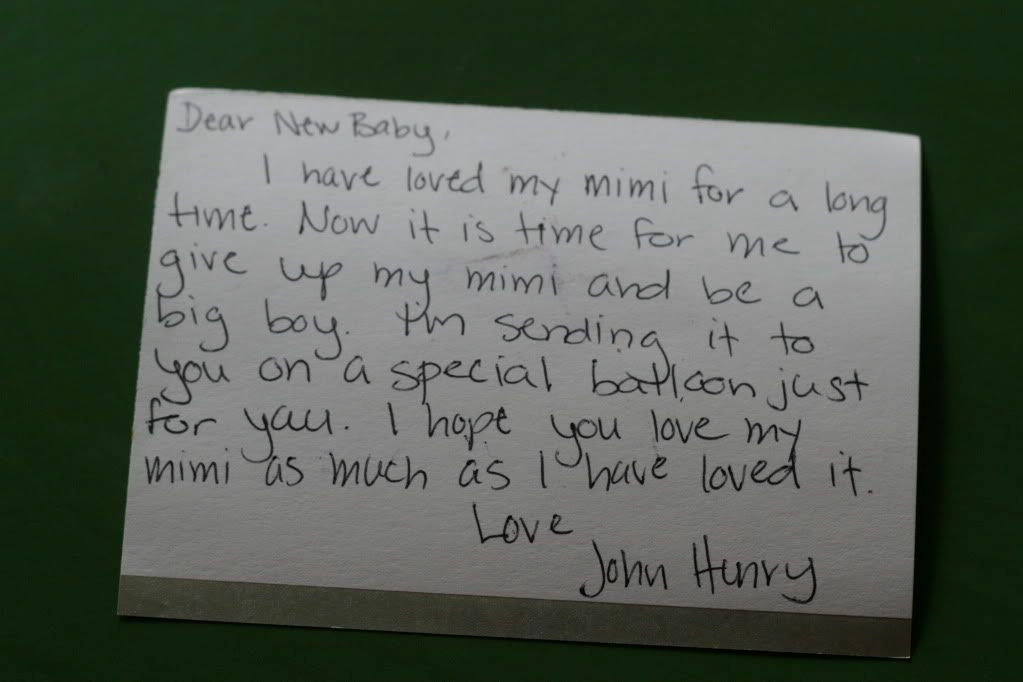 Dear New Baby,
I have loved my mimi for a long
time. Now it is time for me to
give up my mimi and be a
big boy. I'm sending it to
you on a special balloon just
for you. I hope you love my
mimi as much as I have loved it.
Love
John Henry